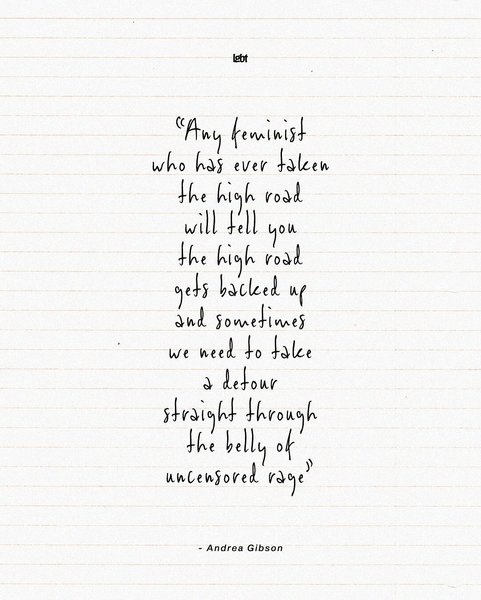 “Any feminist
who has ever taken
the high road
will tell you
the high road
gets backed up
and sometimes
we need to take
a detour
straight through
the belly of
uncensored rage”
- Andrea Gibson